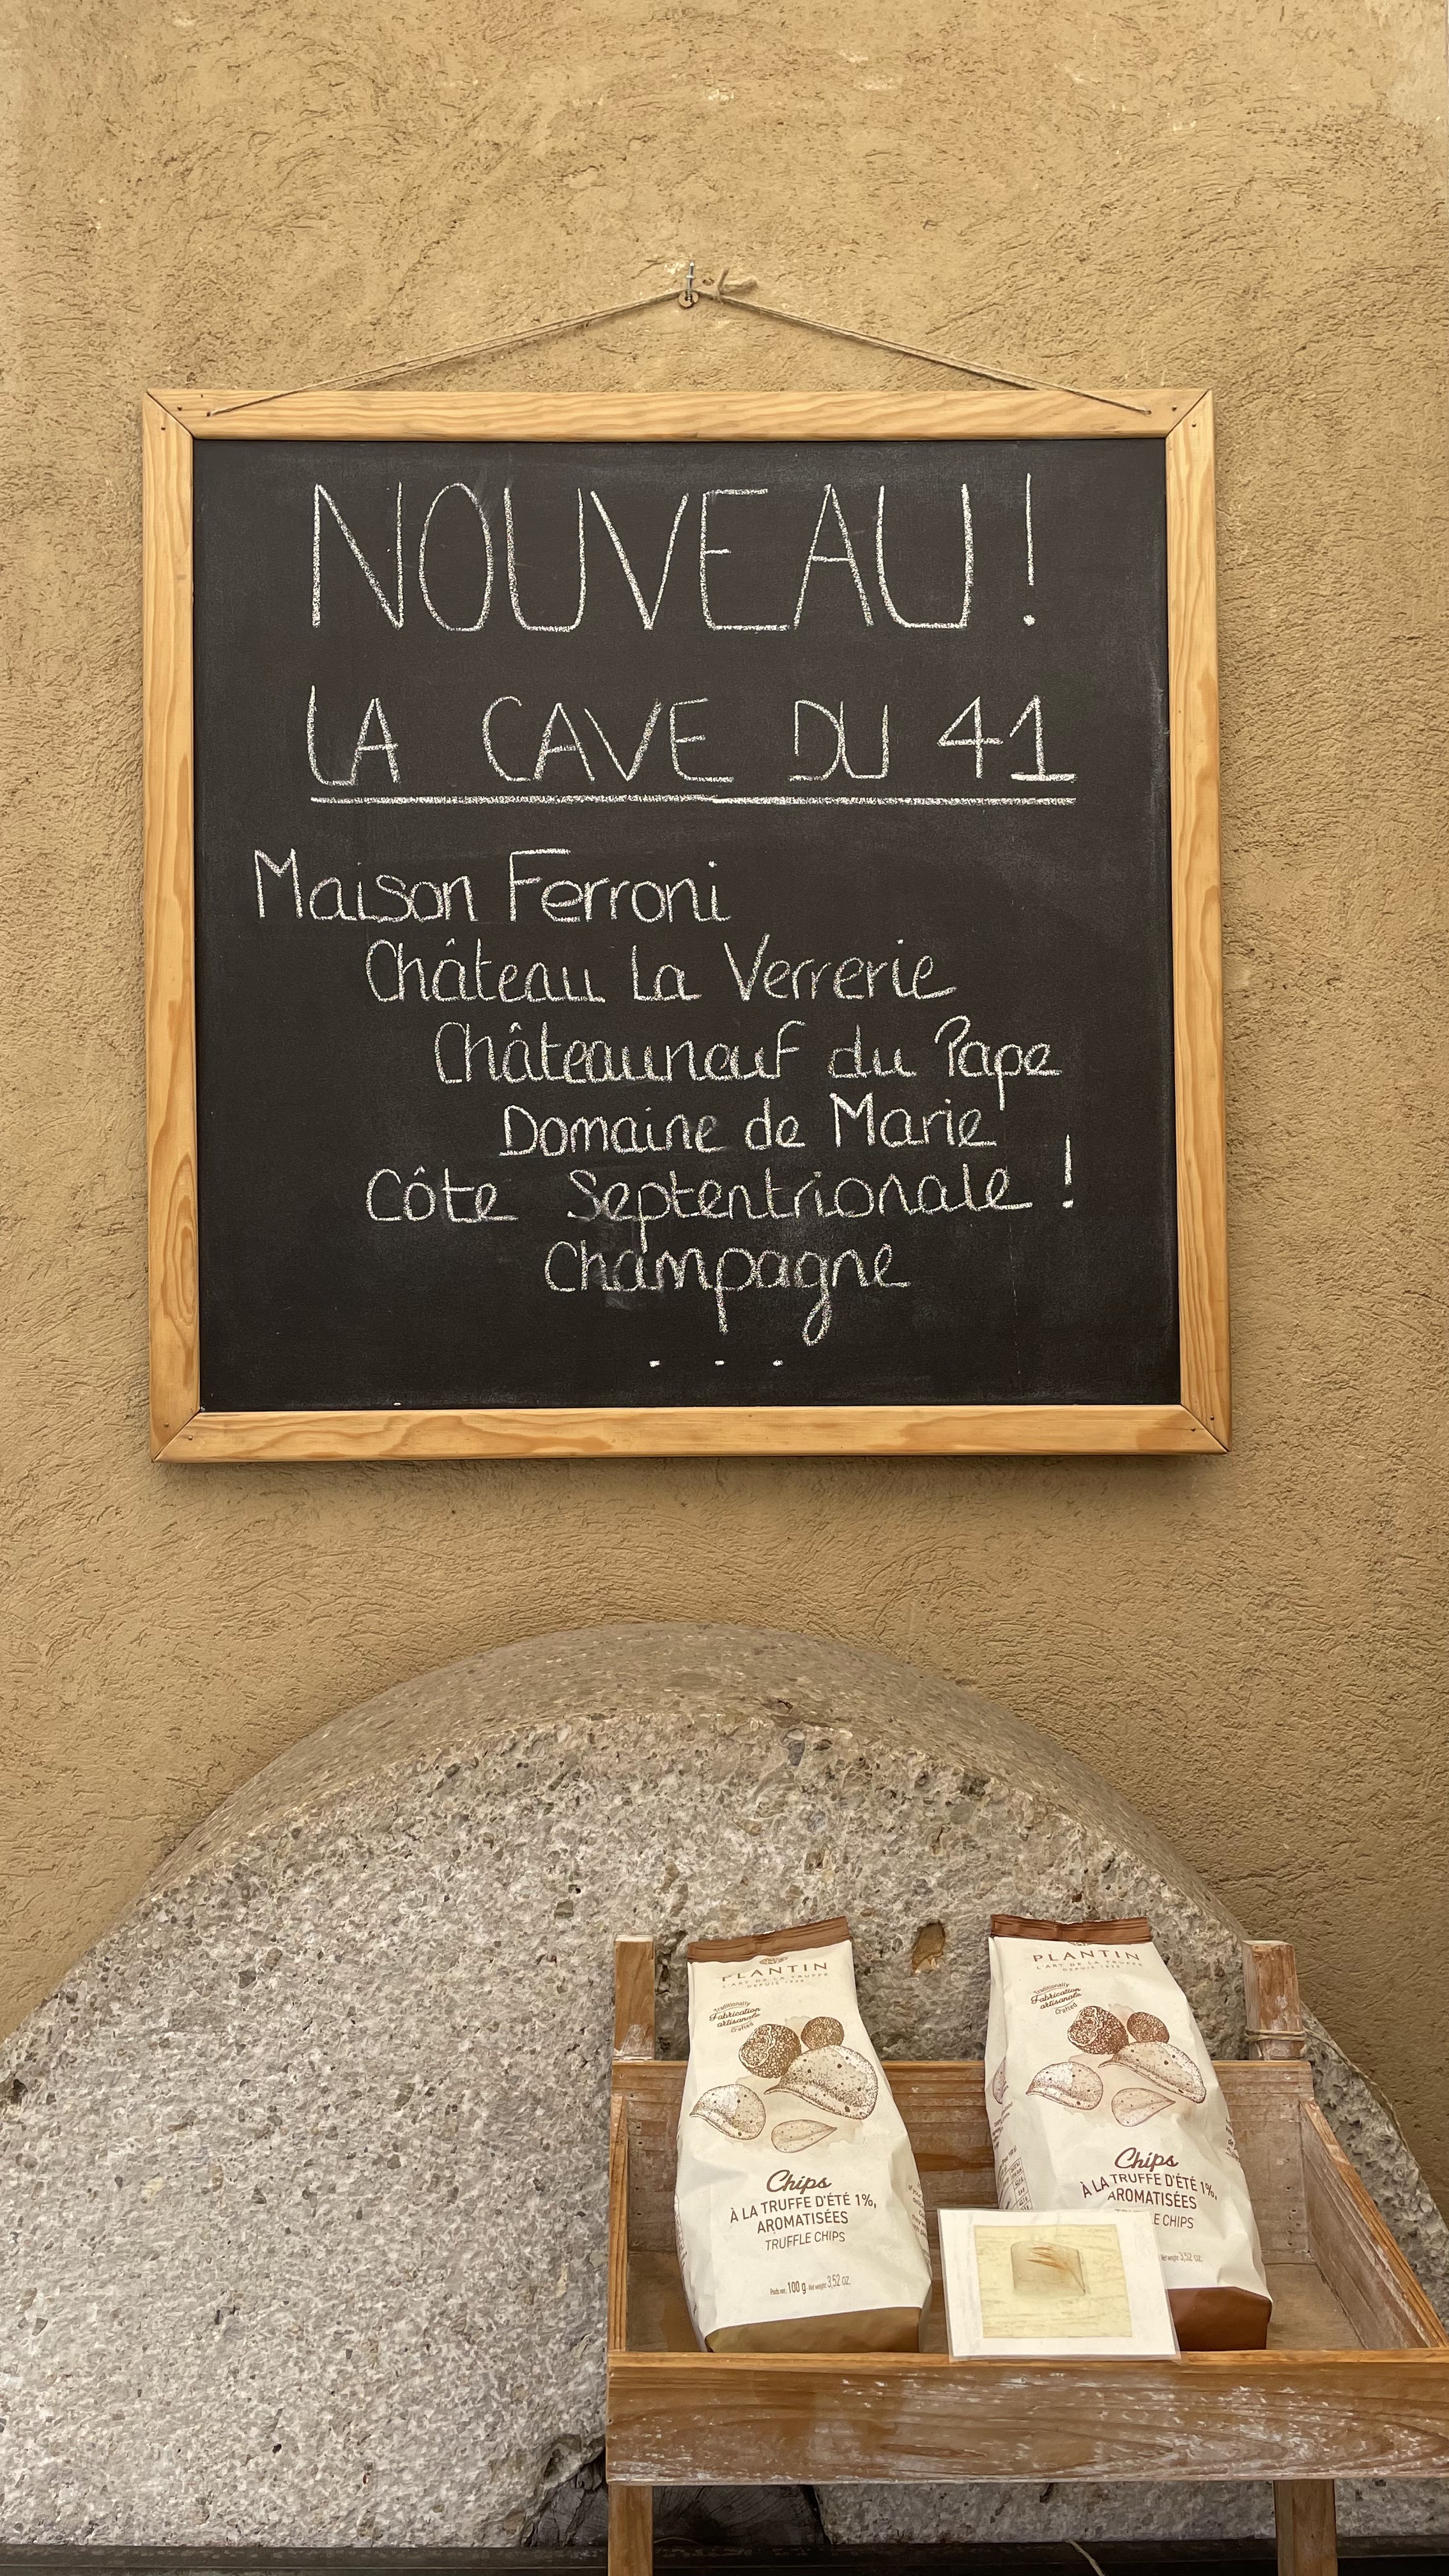 NOUVEAU !
LA CAVE DU 41
Maison Ferroni
Château La Verrerie
Châteauneuf du Pape
Domaine de Marie
Côte Septentrionale !
Champagne
...
PLANTIN
L'ART DE LA TRUFFE
Traditionally
Fabrication
artisanale
Crafted
Chips
À LA TRUFFE D'ÉTÉ 1%,
AROMATISÉES
TRUFFLE CHIPS
Poids net: 100 g Net weight: 3,52 oz.
PLANTIN
L'ART DE LA TRUFFE
Traditionally
Fabrication
artisanale
Crafted
Chips
À LA TRUFFE D'ÉTÉ 1%,
AROMATISÉES
LE CHIPS
Net weight: 3,52 oz.